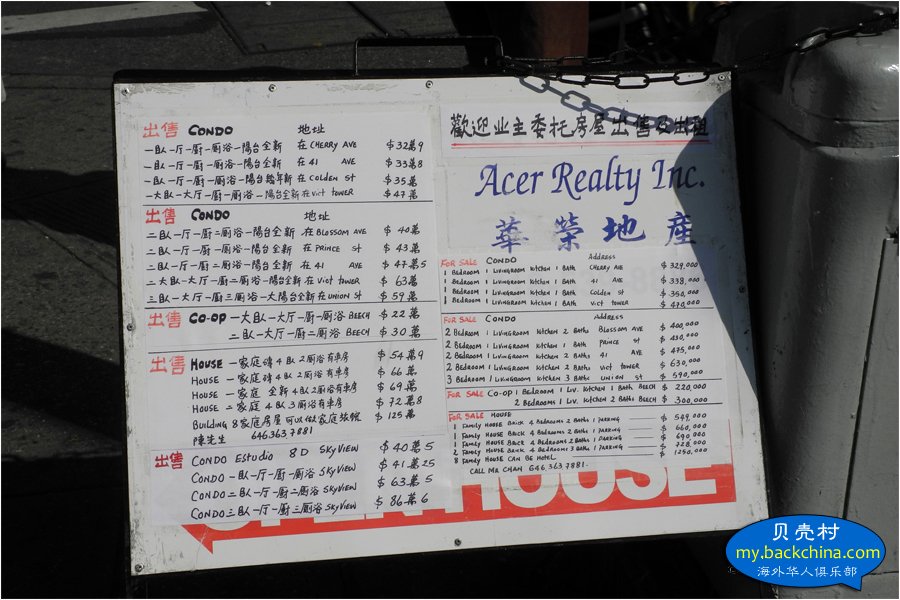 出售 CONDO 地址
一臥一厅一廚一厠浴一陽台全新 在 CHERRY AVE $32萬9
一臥一厅一廚一厠浴一陽台全新 在 41 AVE $33萬8
一臥一厅一廚一厠浴一陽台 在 COLDEN St $35萬
一大臥一大厅一廚一厠浴一陽台全新在 Vict TOWER $47萬
出售 CONDO 地址
二臥一厅一廚二厠浴一陽台全新 在 BLOSSOM AVE $40萬
二臥一厅一廚一厠浴一陽台全新 在 PRINCE St $43萬
二臥一厅一廚二厠浴一陽台全新 在 41 AVE $47萬5
二大臥一大厅一廚二厠浴一陽台全新在 Vict TOWER $63萬
三臥一大厅一廚三厠浴一大陽台全新在 UNION St $59萬
出售 CO-OP 一大臥一大厅一廚一厠浴 BEECH $22萬
二臥一大厅一廚二厠浴 BEECH $30萬
出售 HOUSE 一家庭磚4臥2厠浴有車房 $54萬9
HOUSE 一家庭磚4臥2厠浴有車房 $66萬
HOUSE 一家庭 全新4臥2厠浴有車房 $69萬
HOUSE 二家庭 4臥3厠浴有車房 $72萬8
BUILDING 8家庭房屋可以做家庭旅館 $125萬
陳先生 646 363 7881
出售 CONDO EStudio 8D SKYVIEW $40萬5
CONDO 一臥一厅一廚一厠浴 SKYVIEW $41萬25
CONDO 二臥一厅一廚二厠浴 SKYVIEW $63萬5
CONDO 三臥一厅一廚三厠浴 SKYVIEW $86萬6
歡迎业主委托房屋出售及出租
Acer Realty Inc.
華榮地產
FOR SALE CONDO Address
1 BEDROOM 1 LIVINGROOM KitCHEN 1 BAth CHERRY AVE $329,000
1 BEDROOM 1 LIVINGROOM KitCHEN 1 BAth 41 AVE $338,000
1 BEDROOM 1 LIVINGROOM KitCHEN 1 BAth COLDEN St $350,000
1 BEDROOM 1 LIVINGROOM KitCHEN 1 BAth VICT TOWER $470,000
FOR SALE CONDO Address
2 BEDROOM 1 LIVINGROOM KitCHEN 2 BAths BLOSSOM AVE $400,000
2 BEDROOM 1 LIVINGROOM KitCHEN 1 BAth PRINCE St $430,000
2 BEDROOM 1 LIVINGROOM KitCHEN 2 BAths 41 AVE $475,000
2 BEDROOM 1 LIVINGROOM KitCHEN 2 BAths VICT TOWER $630,000
3 BEDROOM 1 LIVINGROOM KitCHEN 3 BAths UNION St $590,000
FOR SALE CO-OP 1 BEDROOM 1 LIV. KItCHEN 1 BAth BEECH $220,000
2 BEDROOMS 1 LIV KItCHEN 2 BAths BEECH $300,000
FOR SALE HOUSE
1 FAMILY HOUSE BRICK 4 BEDROOMS 2 BAths 1 PARKING $549,000
1 FAMILY HOUSE BRICK 4 BEDROOMS 2 BAths 1 PARKING $660,000
1 FAMILY HOUSE BRICK 4 BEDROOMS 2 BAths 1 PARKING $690,000
2 FAMILY HOUSE BRICK 4 BEDROOMS 3 BAths 1 PARKING $728,000
8 FAMILY HOUSE CAN BE HOtEL $1250,000
CALL MR CHAN 646.363.7881.
OPEN HOUSE
贝壳村
my.backchina.com
海外华人俱乐部